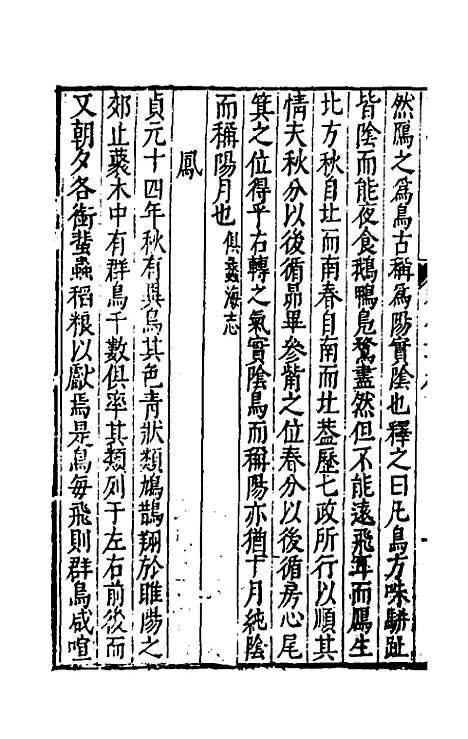 然鴈之爲鳥古稱爲陽實陰也釋之曰凡鳥方喙駢趾
皆陰而能夜食鵝鴨鳧鶩盡然但不能遠飛耳而鴈生
北方秋自北而南春自南而北葢歷七政所行以順其
情夫秋分以後循昴畢參觜之位春分以後循房心尾
箕之位得乎右轉之氣實陰鳥而稱陽亦猶十月純陰
而稱陽月也俱蠡海志
鳳
貞元十四年秋有異鳥其色青狀類鳩鵲翔於睢陽之
郊止藂木中有群鳥千數俱率其類列于左右前後而
又朝夕各銜蜚蟲稻粮以獻焉是鳥每飛則群鳥咸喧